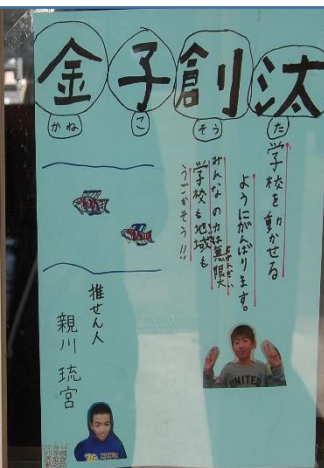 金子創汰
かね こ そう た
学校を動かせる
ようにがんばります。
みんなの力は無限大
むげんだい
学校も地域も
うごかそう!!
推せん人
親川 琉宮
UNITED